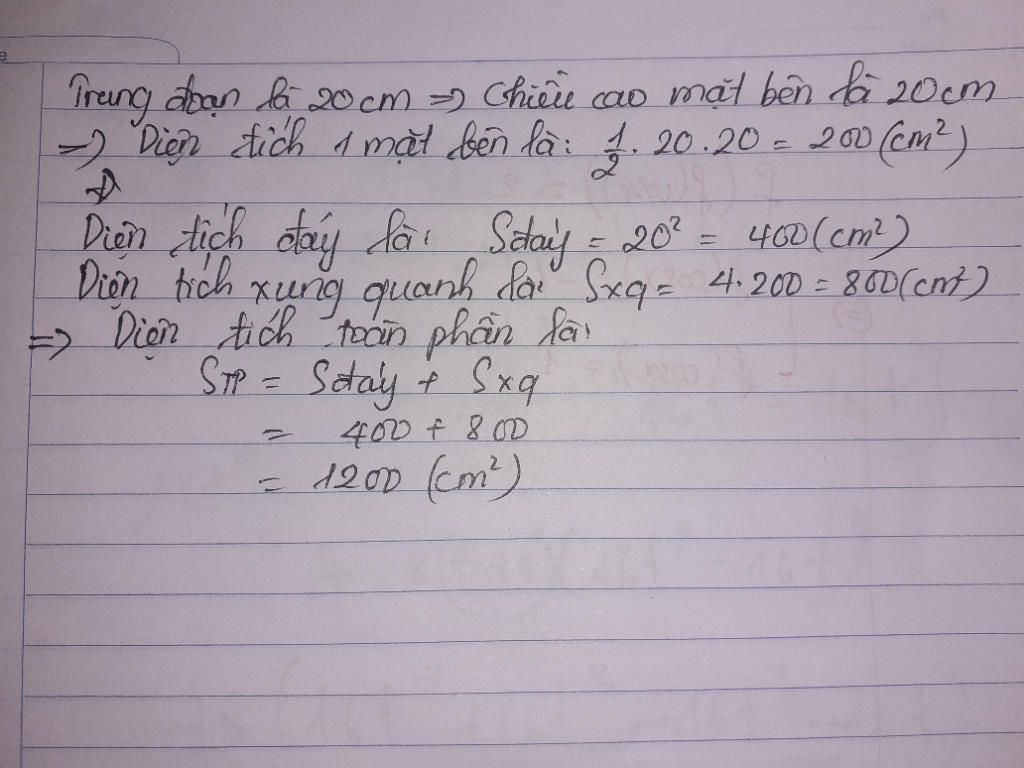 Trung đoạn là 20cm => Chiều cao mặt bên là 20cm
=> Diện tích 1 mặt bên là: 1/2 . 20 . 20 = 200 (cm²)
Diện tích đáy là: Sđáy = 20² = 400 (cm²)
Diện tích xung quanh là: Sxq = 4.200 = 800 (cm²)
=> Diện tích toàn phần là:
STP = Sđáy + Sxq
= 400 + 800
= 1200 (cm²)